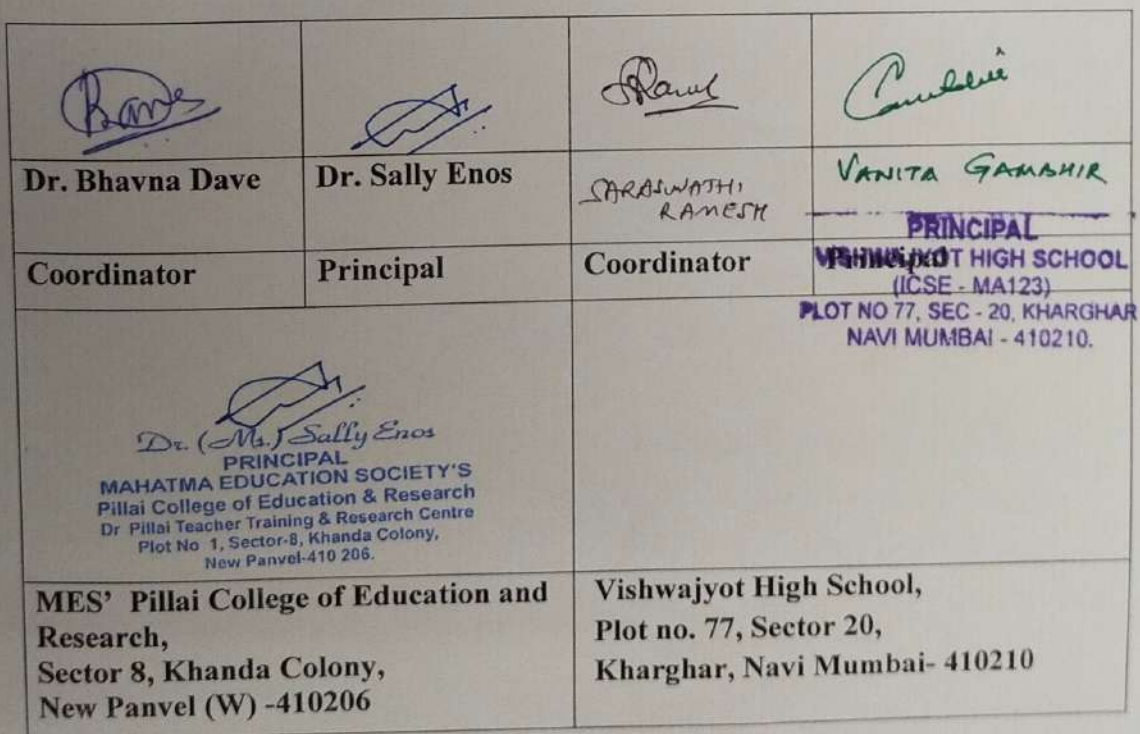 Dr. Bhavna Dave
Dr. Sally Enos
SARASWATHI
RAMESH
VANITA GAMBHIR
Coordinator
Principal
Coordinator
Principal
PRINCIPAL
VISHWAJYOT HIGH SCHOOL
(ICSE - MA123)
PLOT NO 77, SEC - 20, KHARGHAR
NAVI MUMBAI - 410210.
Dr. (Ms.) Sally Enos
PRINCIPAL
MAHATMA EDUCATION SOCIETY'S
Pillai College of Education & Research
Dr Pillai Teacher Training & Research Centre
Plot No 1, Sector-8, Khanda Colony,
New Panvel-410 206.
MES’ Pillai College of Education and
Research,
Sector 8, Khanda Colony,
New Panvel (W) -410206
Vishwajyot High School,
Plot no. 77, Sector 20,
Kharghar, Navi Mumbai- 410210